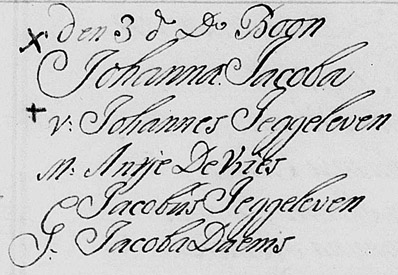 x den 3 d Do Bogn
Johanna Jacoba
+ v: Johannes Jeggeleven
m: Antje De Vries
G Jacobus Jeggeleven
G: Jacoba Daenis